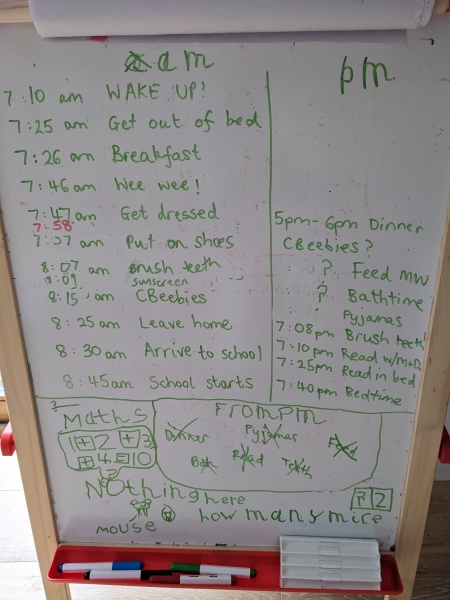 am
7:10 am WAKE UP!
7:25 am Get out of bed
7:26 am Breakfast
7:46 am Wee wee!
7:47 am Get dressed
7:58
7:57 am Put on shoes
8:07 am Brush teeth
8:09 sunscreen
8:15 am CBeebies
8:25 am Leave home
8:30 am Arrive to school
8:45am School starts
pm
5pm-6pm Dinner
CBeebies?
? Feed MW
? Bathtime
Pyjamas
7:08pm Brush teeth
7:10pm Read w/M+D
7:25pm Read in bed
7:40pm Bedtime
Maths
1+2+3
+4=10
From pm
Dinner
Pyjamas
Read
Teeth
Nothing here
mouse
how many mice
2